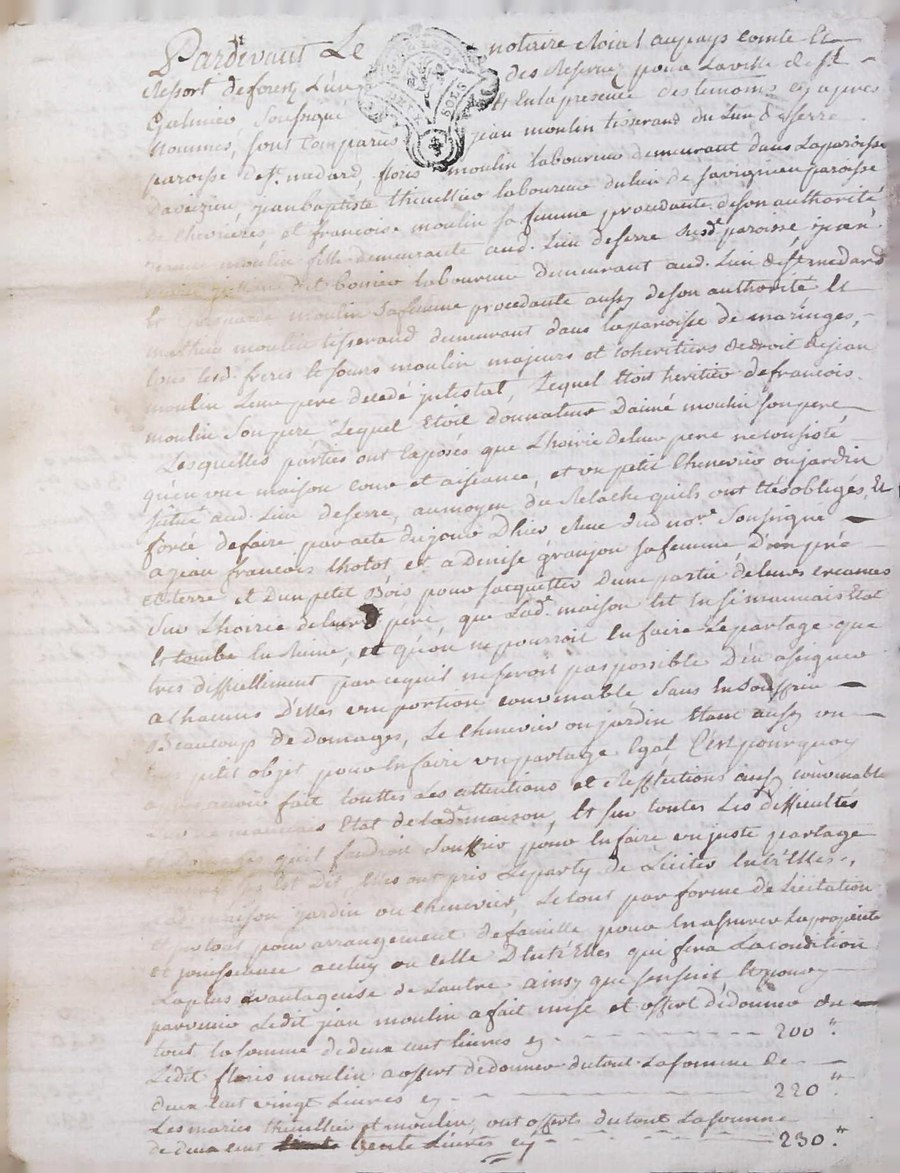 Pardevant Le notaire Roial au pays comté Et
Ressort de forest L'un des Reservés pour La ville de St.
Galmier Soussigné Et En la presence des temoins cy apres
Nommés, sont Comparus jean moulin tisserand du Lieu de Serre
paroisse de St. medard, floris moulin laboureur demeurant dans La paroisse
Daveizieu, jean baptiste thivellier laboureur du lieu de savignieu paroisse
de Chevrieres, et francoise moulin sa femme procedante de son authorité
moulin fille demeurante aud. Lieu de serre susde. paroisse,
dit bonier laboureur demeurant aud. Lieu de St. medard
Et moulin sa femme procedante aussy de son authorité Et
mathieu moulin tisserand demeurant dans la paroisse de maringes,
tous lesd. freres Et sœurs moulin majeurs et coheritiers de droit de jean
moulin Leur pere decedé jntestat, Lequel Etoit heritier de francois
moulin son pere Lequel Etoit donnateur D'aimé moulin son pere
Lesquelles parties ont Exposés que L'hoirie de leur pere ne consiste
qu'en une maison cour et aisiance, et un petit Chenevier ou jardin
situé aud. Lieu de serre, au moyen du Relache qu'ils ont Etés obligés Et
forcé de faire par acte du jour D'hier Reçue dud nore. Soussigné
a jean francois Chotot et a Denise granjon sa femme, D'un pré
et terre et D'un petit Bois pour s'acquitter d'une partie de leurs creances
sur L'hoirie de leur pere, que Lade. maison Est En si mauvais Etat
Et tombe En Ruine, et qu'on ne pourroit En faire Le partage que
tres difficillement parce qu'il ne seroit pas possible D'en asigner
a Chacuns D'elles une portion convenable sans En Souffrir
Beaucoup de domages, Le chenevier ou jardin Etant aussy un
tres petit objet pour En faire un partage Egal C'est pourquoy
apres avoir fait touttes Les attentions et Reflections aussy convenable
sur le mauvais Etat de lade. maison, Et sur toutes Les difficultés
et domages qu'il faudroit Souffrir pour En faire un juste partage
Est Dit Elles ont pris Le party de Liciter Entr'Elles,
Lade. maison jardin ou chenevier, Le tout par forme de Licitation
et surtout pour arrangement de famille, pour En assurer La proprieté
et jouissance a celuy ou celle D'entr'Elles qui fera La condition
La plus avantageuse de L'autre ainsy que s'ensuit Et pour y
parvenir Ledit jean moulin a fait mise et offert de donner du
tout la somme de deux cent livres cy - - - - - - - 200 ".
Ledit floris moulin a offert de donner du tout La somme de
deux cent vingt Livres cy - - - - - - - 220 ".
Les mariés thivellier et moulin, ont offerts du tout La somme
de deux cent trente Livres cy - - - - - - - 230 ".